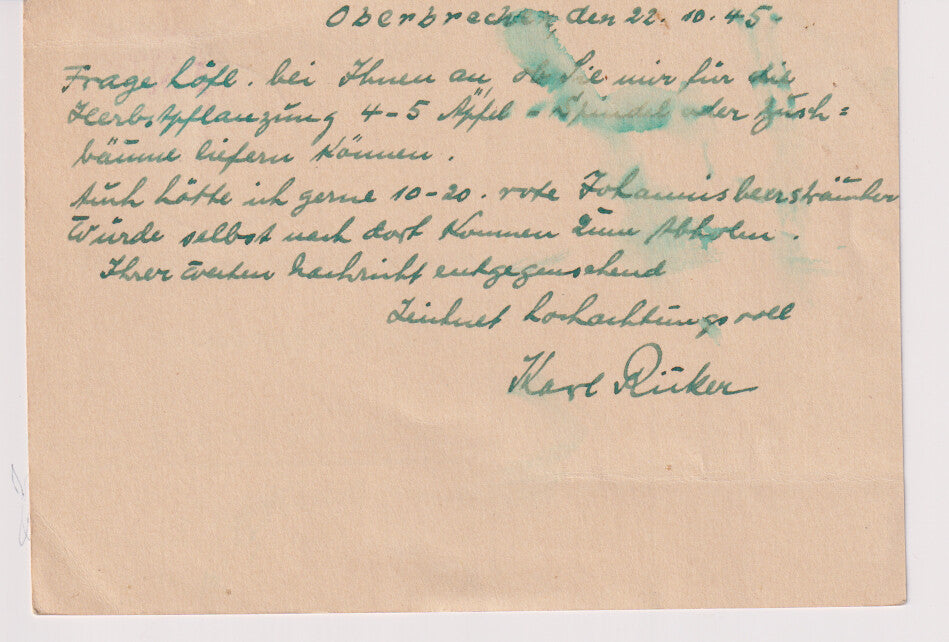 Oberbrechen, den 22. 10. 45.
Frage höfl. bei Ihnen an, ob Sie mir für die
Herbstpflanzung 4-5 Äpfel - Spindel oder Busch=
bäume liefern können.
Auch hätte ich gerne 10-20. rote Johannisbeersträucher
Würde selbst nach dort kommen zum Abholen.
Ihrer werten Nachricht entgegensehend
Zeichnet hochachtungsvoll
Karl